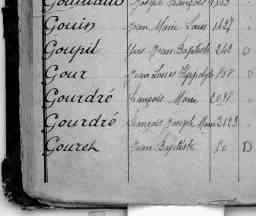 Gouin Jean Marie Louis 1627
Goupil Jean Baptiste 240 D
Gour Jean Louis Hippolyte
Gourdré François Marie
Gourdré François Joseph Marie 2123
Gouret Jean Baptiste 50 D